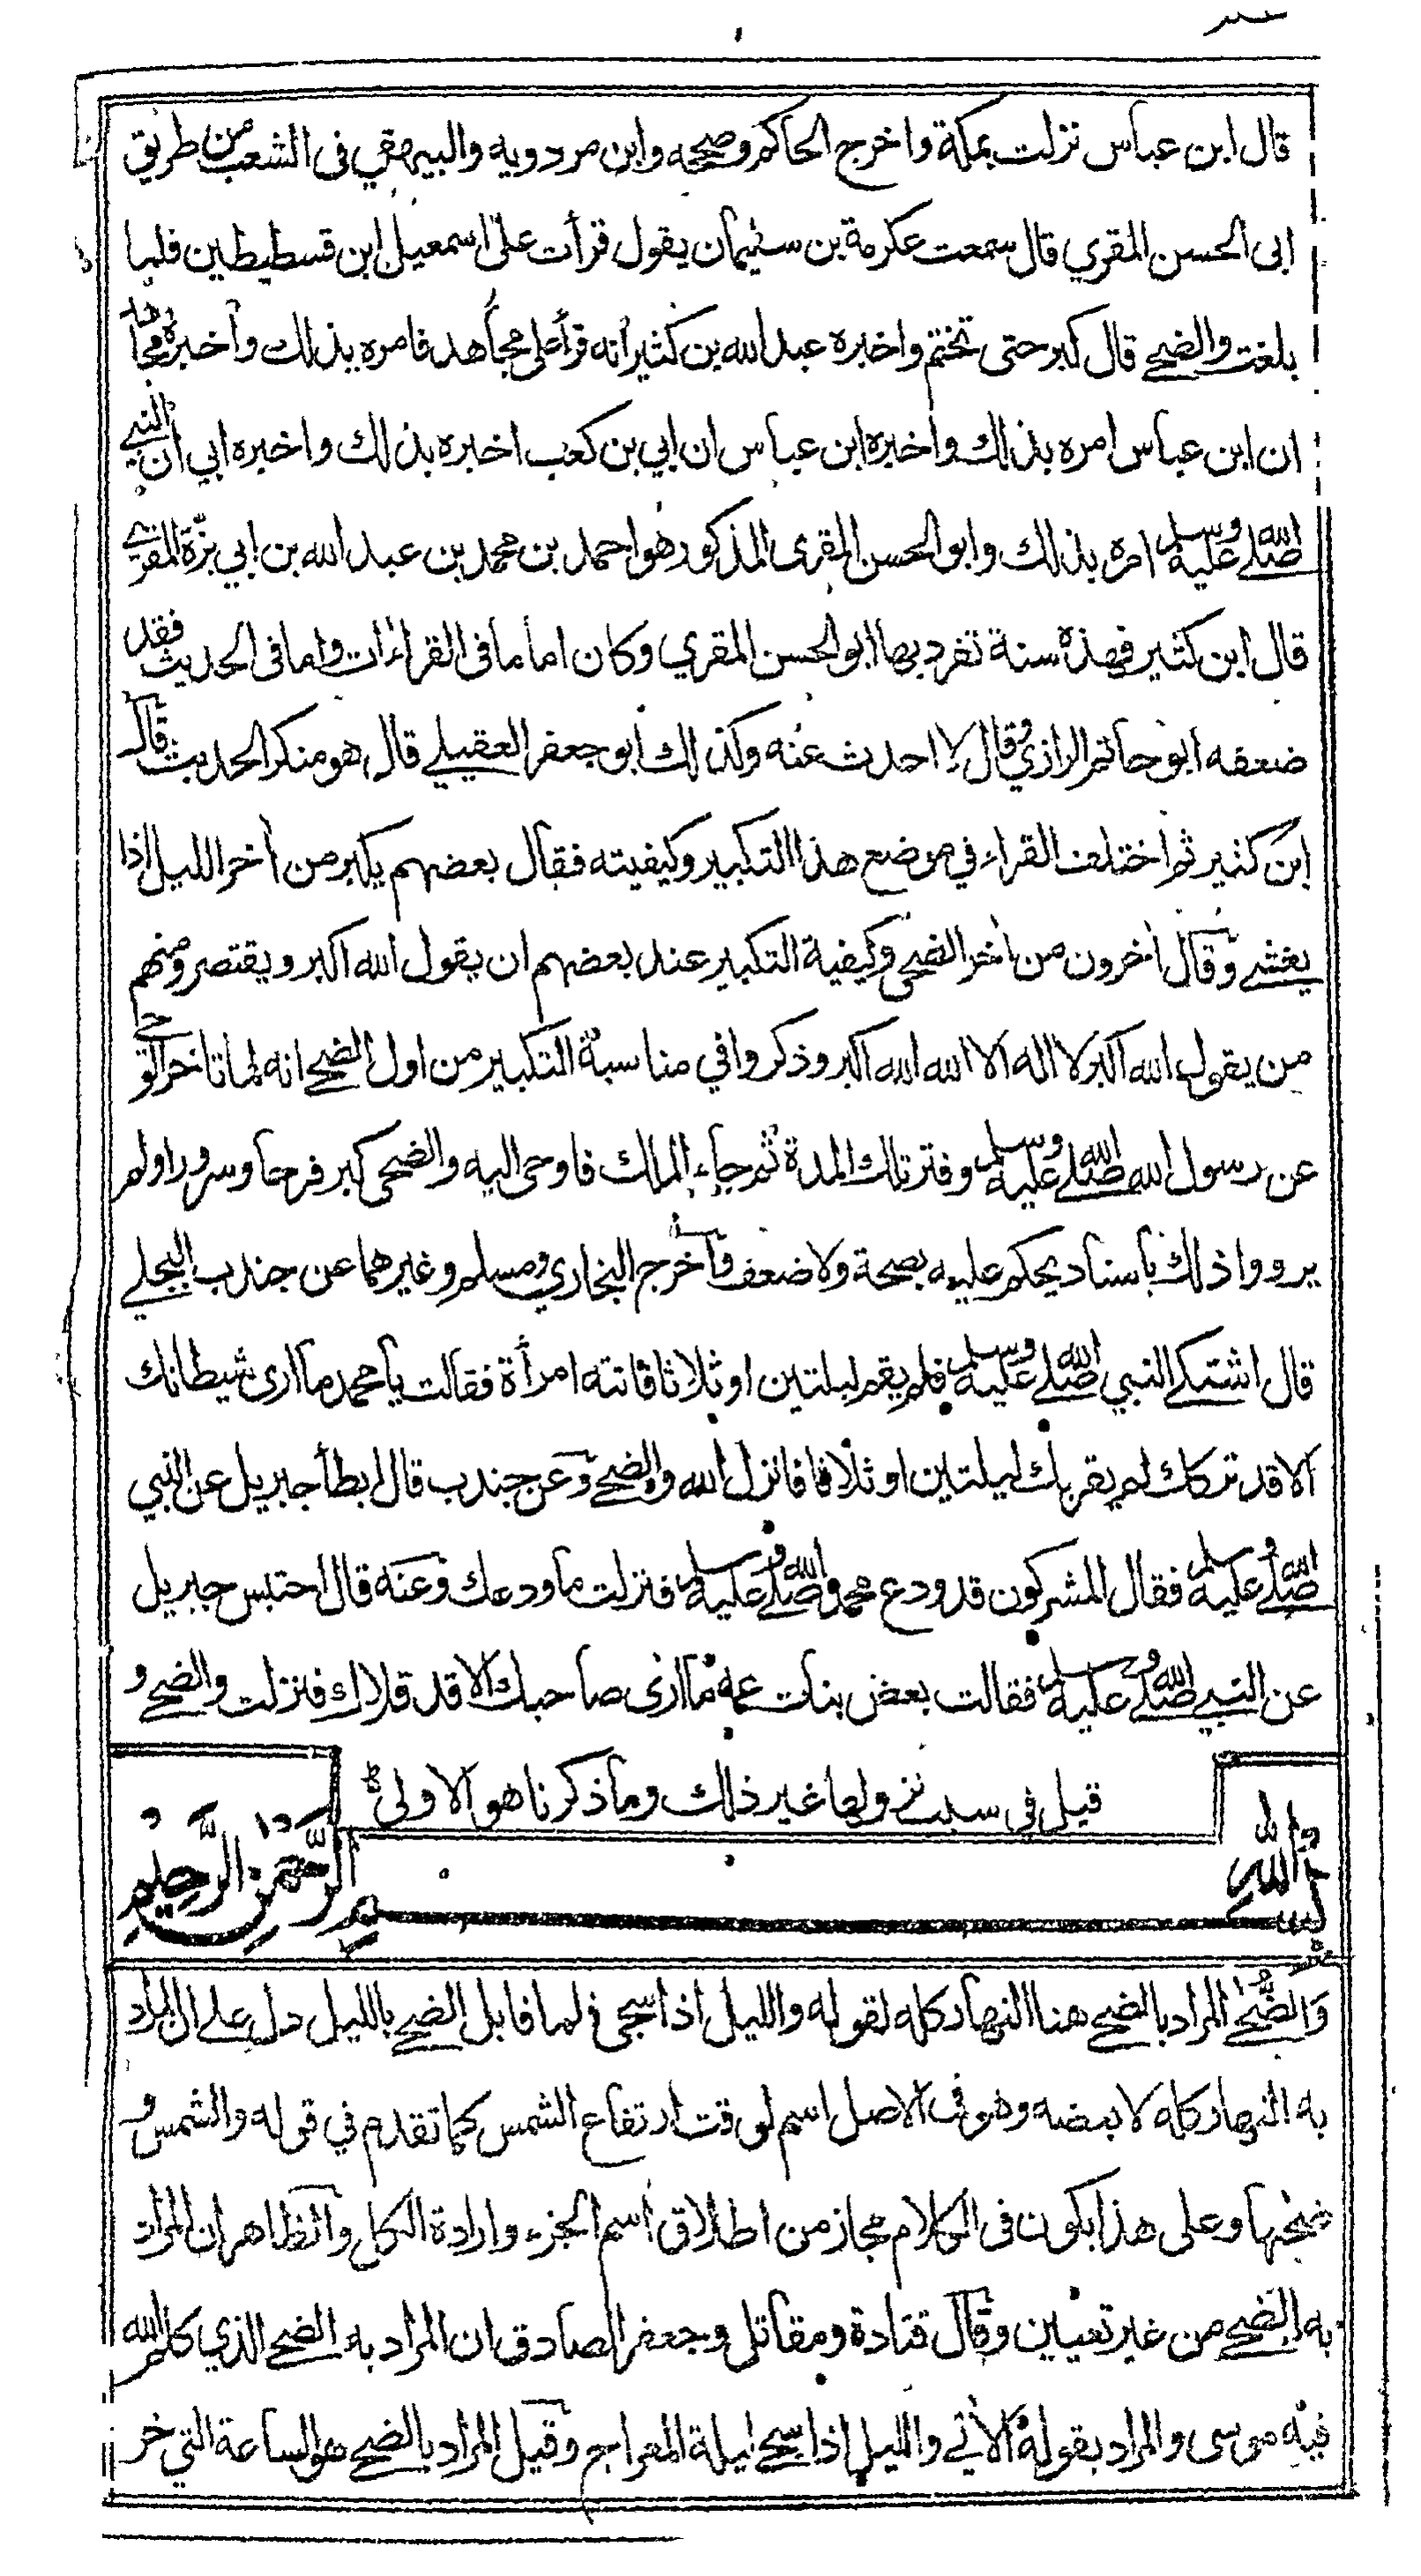 قال ابن عباس نزلت بمكة واخرج الحاكم وصححه وابن مردويه والبيهقي فى الشعب من طريق
ابى الحسن المقري قال سمعت عكرمة بن سليمان يقول قرأت على اسمعيل ابن قسطيطين فلما
بلغت والضحى قال كبر حتى تختم واخبره عبد الله بن كثير أنه قرأ على مجاهد فامره بذلك وأخبره مجاهد
ان ابن عباس امره بذلك واخبره ابن عباس ان ابي بن كعب اخبره بذلك واخبره ابي أن النبي
صلى الله عليه وسلم امره بذلك وابو الحسن المقرى المذكور هو احمد بن محمد بن عبد الله بن ابي بزّة المقري
قال ابن كثير فهذه سنة تفرد بها ابو الحسن المقري وكان اماما فى القراءات واما فى الحديث فقد
ضعفه ابو حاتم الرازي وقال لا احدث عنه وكذلك ابو جعفر العقيلي قال هو منكر الحديث قال
ابن كثير ثم اختلف القراء في موضع هذا التكبير وكيفيته فقال بعضهم يكبر من أخر الليل اذا
يغشى وقال أخرون من أخر الضحى وكيفية التكبير عند بعضهم ان يقول الله اكبر ويقتصر ومنهم
من يقول الله اكبر لا اله الا الله الله اكبر وذكروا في مناسبة التكبير من اول الضحى انه لما تاخر الوحي
عن رسول الله صلى الله عليه وسلم وفتر تلك المدة ثم جاء الملك فاوحى اليه والضحى كبر فرحا وسرورا ولم
يرووا ذلك باسناد يحكم عليه بصحة ولا ضعف وأخرج البخاري ومسلم وغيرهما عن جندب البجلي
قال اشتكى النبي صلى الله عليه وسلم فلم يقم ليلتين او ثلاثا فاتته امرأة فقالت يا محمد ما ارى شيطانك
الا قد تركك لم يقربك ليلتين او ثلاثا فانزل الله والضحى وعن جندب قال ابطأ جبريل عن النبي
صلى الله عليه وسلم فقال المشركون قد ودع محمد صلى الله عليه وسلم فنزلت ما ودعك وعنه قال احتبس جبريل
عن النبي صلى الله عليه وسلم فقالت بعض بنات عمه ما ارى صاحبك الا قد قلاك فنزلت والضحى و
قيل في سبب نزولها غير ذلك وما ذكرنا هو الاولى
بسم الله الرحمن الرحيم
وَالضُّحى المراد بالضحى هنا النهار كله لقوله والليل اذا سجى فلما قابل الضحى بالليل دل على ان المراد
به النهار كله لا بعضه وهو فى الاصل اسم لوقت ارتفاع الشمس كما تقدم في قوله والشمس و
ضحها وعلى هذا يكون فى الكلام مجاز من اطلاق اسم الجزء وارادة الكل والظاهر ان المراد
به الضحى من غير تعيين وقال قتادة ومقاتل وجعفر الصادق ان المراد به الضحى الذي كلم الله
فيه موسى والمراد بقوله الأتي والليل اذا سجى ليلة المعراج وقيل المراد بالضحى هو الساعة التي خر